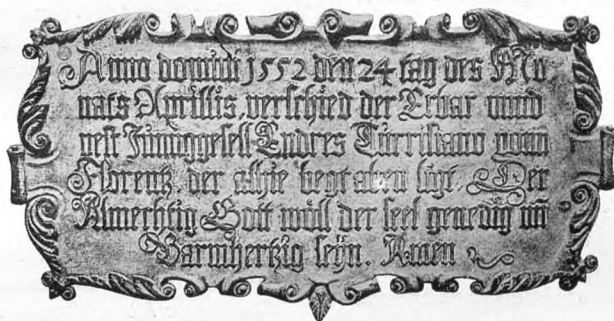 Anno domini 1552 den 24 tag des Mo
nats Aprillis verschied der Erbar unnd
vest Junnggesell Endres Turrisano vonn
Florentz, der alhie begraben ligt. Der
Almechtig Gott wöll der seel genedig un
Barmhertzig seyn. Amen